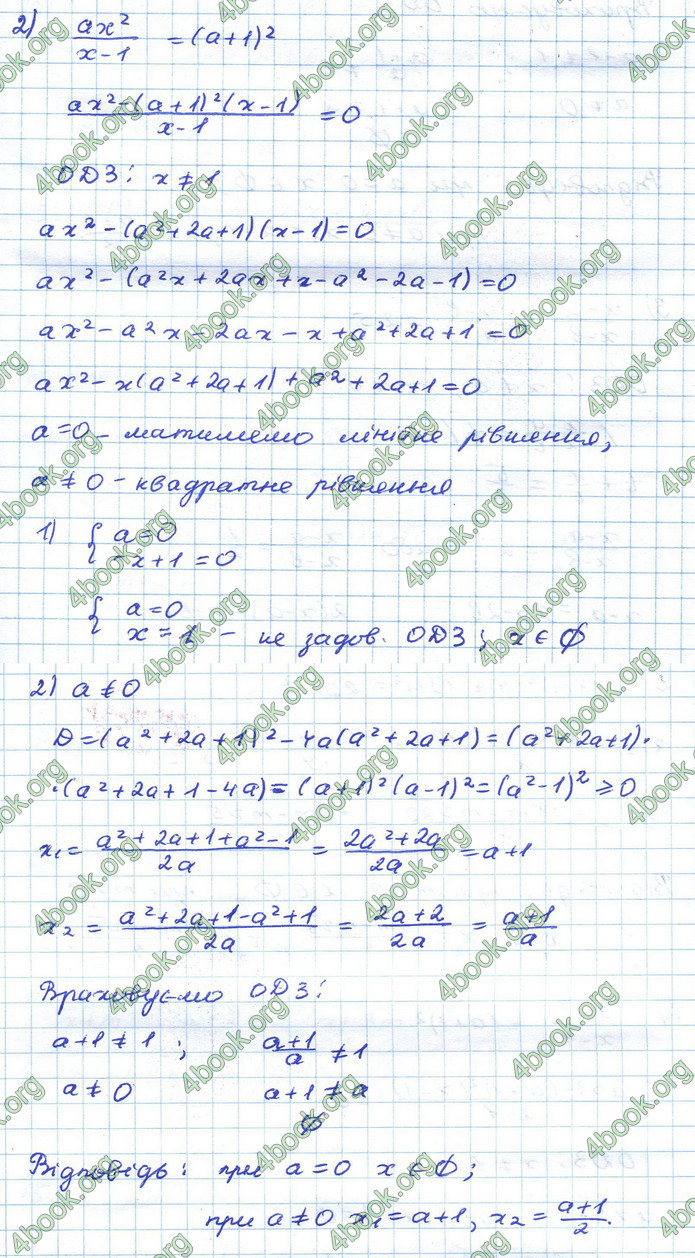 2) ax²/(x-1) = (a+1)²
(ax²-(a+1)²(x-1))/(x-1) = 0
ОДЗ: x ≠ 1
ax² - (a²+2a+1)(x-1) = 0
ax² - (a²x + 2ax + x - a² - 2a - 1) = 0
ax² - a²x - 2ax - x + a² + 2a + 1 = 0
ax² - x(a² + 2a + 1) + a² + 2a + 1 = 0
a = 0 - матимемо лінійне рівняння,
a ≠ 0 - квадратне рівняння
1) { a = 0
-x + 1 = 0
{ a = 0
x = 1 - не задов. ОДЗ; x ∈ ∅
2) a ≠ 0
D = (a² + 2a + 1)² - 4a(a² + 2a + 1) = (a² + 2a + 1)·
·(a² + 2a + 1 - 4a) = (a+1)²(a-1)² = (a²-1)² ≥ 0
x₁ = (a² + 2a + 1 + a² - 1)/2a = (2a² + 2a)/2a = a + 1
x₂ = (a² + 2a + 1 - a² + 1)/2a = (2a + 2)/2a = (a+1)/a
Враховуємо ОДЗ:
a + 1 ≠ 1 ; (a+1)/a ≠ 1
a ≠ 0 a + 1 ≠ a
∅
Відповідь: при a = 0 x ∈ ∅;
при a ≠ 0 x₁ = a + 1, x₂ = (a+1)/2.
4book.org